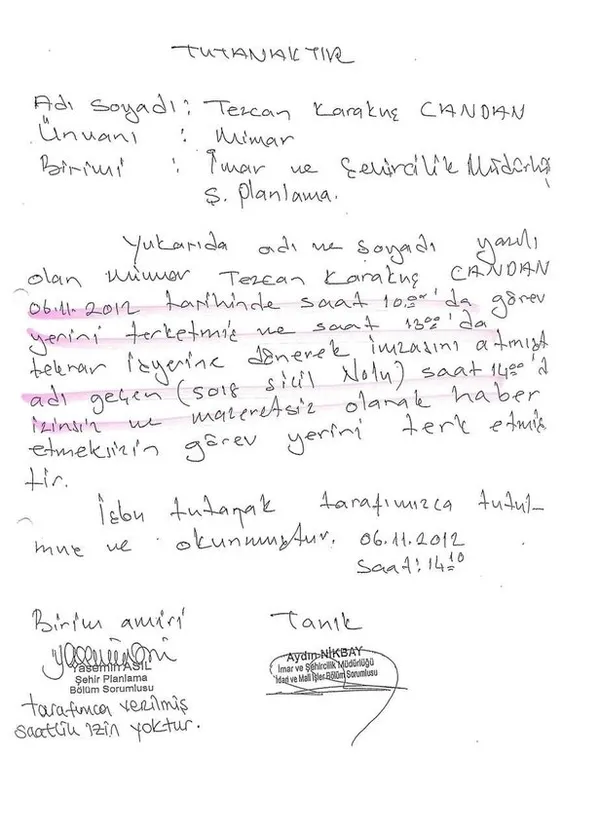 TUTANAKTIR
Adı Soyadı : Tezcan Karakuş CANDAN
Ünvanı : Mimar
Birimi : İmar ve Şehircilik Müdürlüğü
Ş. Planlama.
Yukarıda adı ve soyadı yazılı
olan Mimar Tezcan Karakuş CANDAN
06.11.2012 tarihinde saat 10.00'da görev
yerini terketmiş ve saat 13.00'da
tekrar işyerine dönerek imzasını atmıştır
adı geçen (5018 sicil Nolu) saat 14.00'd
izinsiz ve mazeretsiz olarak haber
etmeksizin görev yerini terk etmiş
tir.
İşbu tutanak tarafımızca tutul-
muş ve okunmuştur. 06.11.2012
Saat: 14.10
Birim amiri Tanık
Yasemin ASIL Aydın NİKBAY
Şehir Planlama İmar ve Şehircilik Müdürlüğü
Bölüm Sorumlusu İdari ve Mali İşler Bölüm Sorumlusu
tarafımca verilmiş
saatlik izin yoktur.